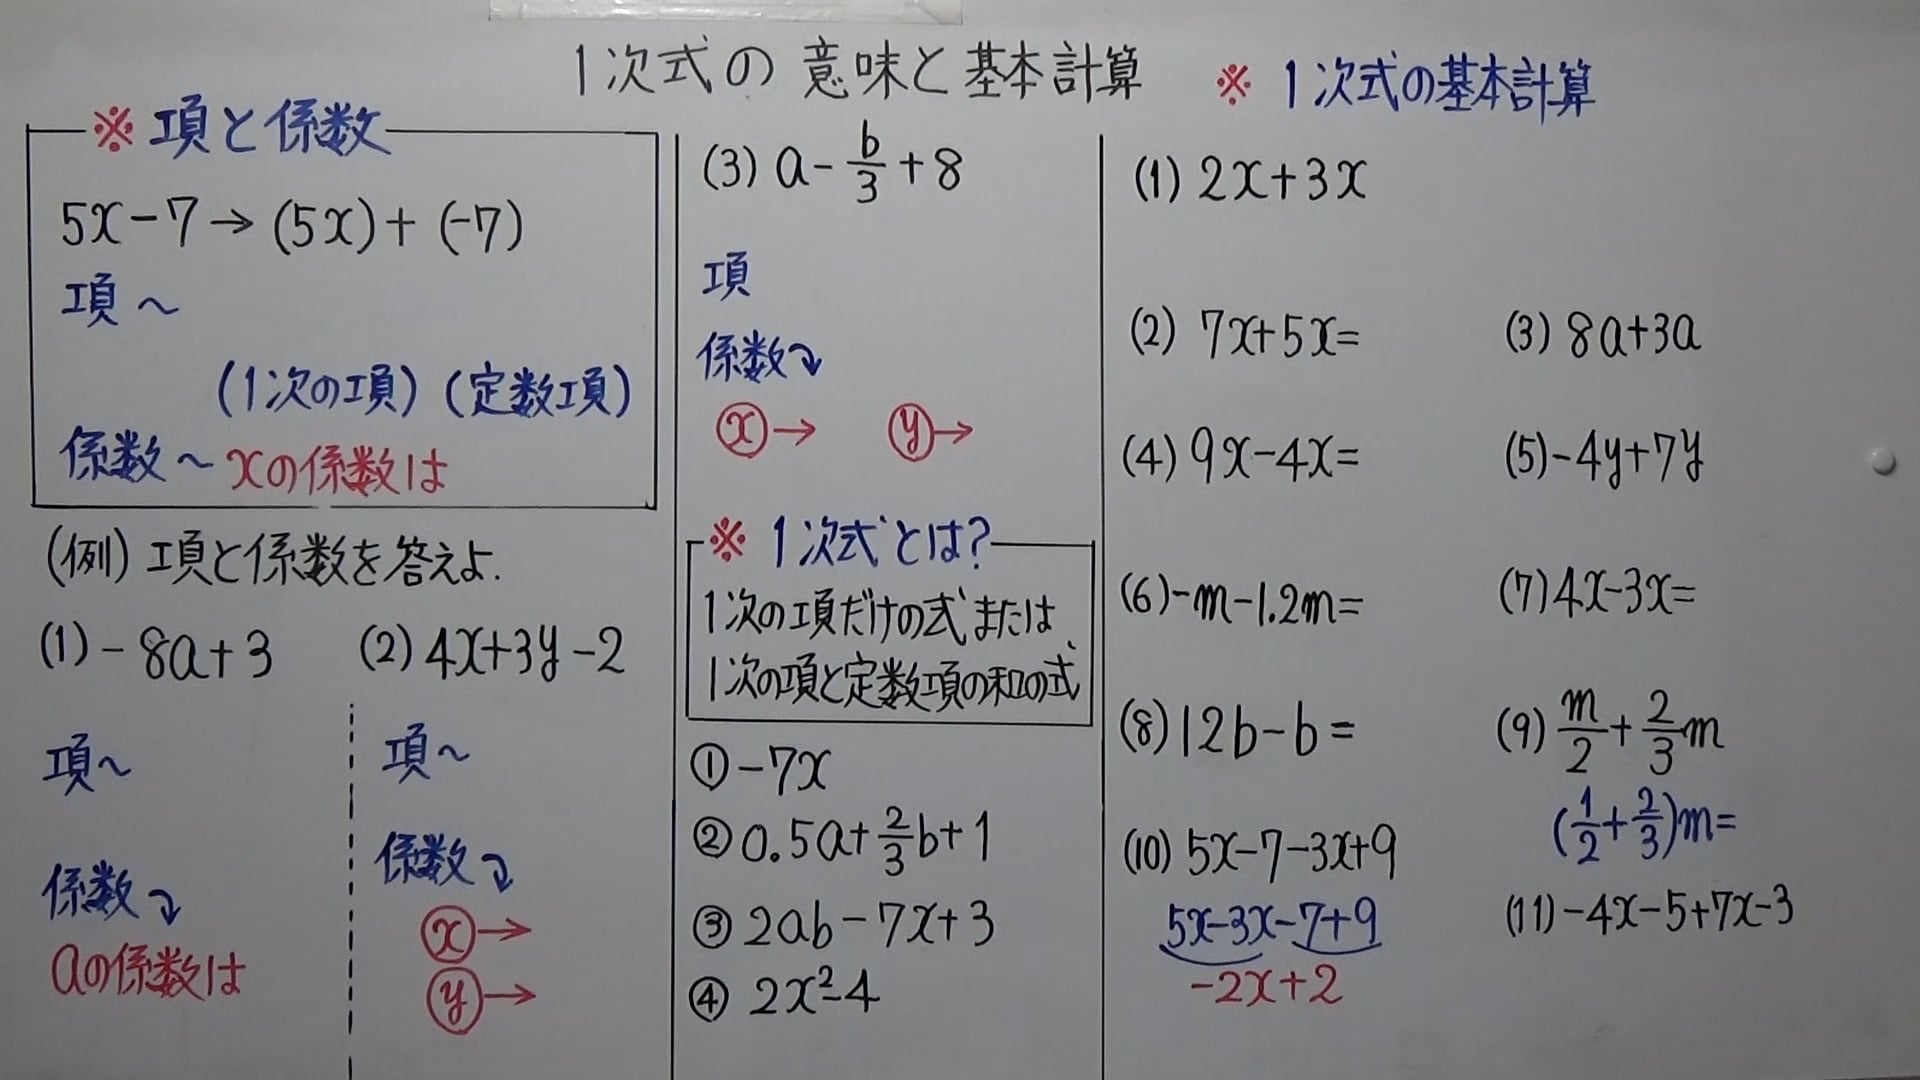 1次式の意味と基本計算
※項と係数
5x-7→(5x)+(-7)
項~
(1次の項)(定数項)
係数~xの係数は
(例)項と係数を答えよ.
(1)-8a+3
項~
係数⤵
aの係数は
(2)4x+3y-2
項~
係数⤵
ⓧ→
ⓨ→
(3)a-b/3+8
項
係数⤵
ⓧ→ ⓨ→
※1次式とは?
1次の項だけの式または、
1次の項と定数項の和の式
①-7x
②0.5a+2/3b+1
③2ab-7x+3
④2x²-4
※1次式の基本計算
(1)2x+3x
(2)7x+5x= (3)8a+3a
(4)9x-4x= (5)-4y+7y
(6)-m-1.2m= (7)4x-3x=
(8)12b-b= (9)m/2+2/3m
(1/2+2/3)m=
(10)5x-7-3x+9
5x-3x-7+9
-2x+2
(11)-4x-5+7x-3